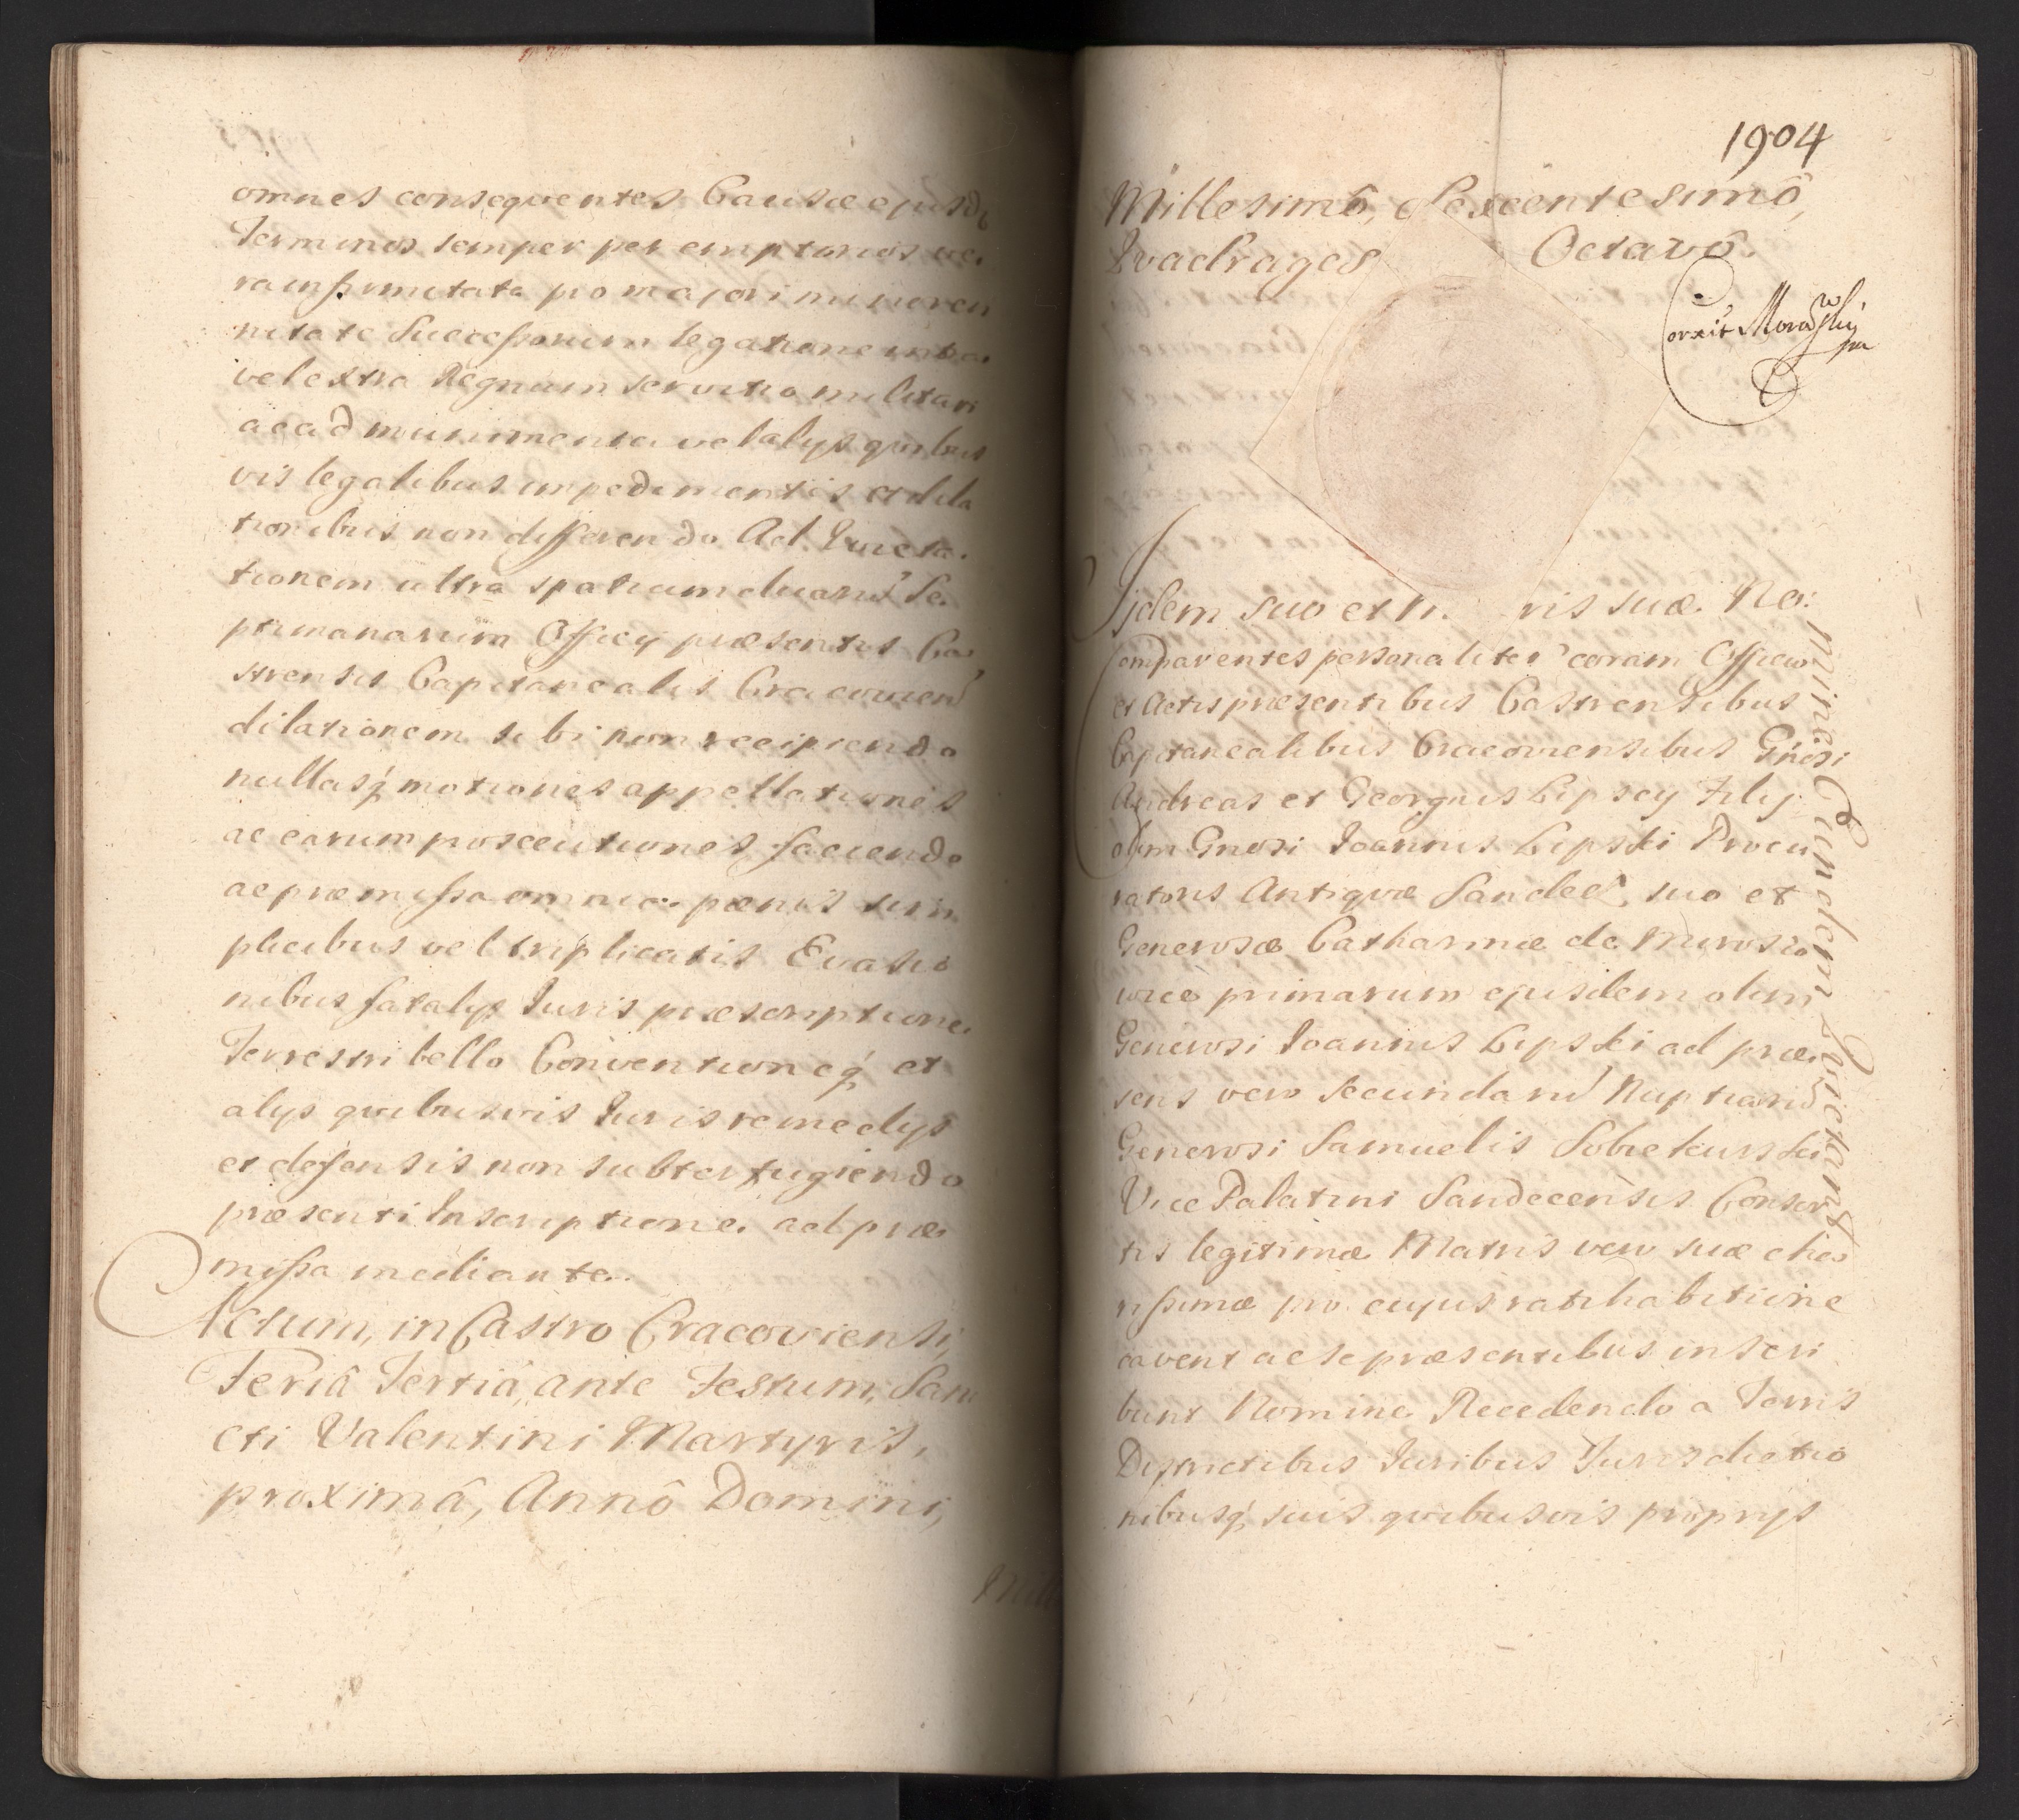 omnes conseqventes Causæ ejusdē
Terminos semper peremptorios ve
ra infirmitate pro majori minoren
nitate Successorum legatione intra
vel extra Regnum servitio militari
ac ad munimenta vel alijs qvibus
vis legalibus impedimentis et dila
tionibus non differendo Ad
tionem ultra spatium duarū Se
ptimanarum Officij præsentis Ca
strensis Capitanealis Cracovien
dilationem sibi non recipiendo
nullasq́ motiones appellationes
ac earum prosecutiones faciendo
ac præmissa omnia pænis sim
plicibus vel triplicatis Evasio
nibus fatalys Juris præscriptione
Terrestri bello Conventioneq́ et
alijs qvibusvis Juris remedijs
et defensis non subterfugiendo
præsenti Inscriptione ad præ
missa mediante.
Actum, in Castro Cracoviensi,
Feriâ Tertiâ, ante Festum, San
cti Valentini Martyris,
proximâ, Annô Domini,
Mill
1904
Millesimô, Sexcentesimô,
Qvadrages Octavô.
Corxit Morawskij
mp
Jidem suo et
ris suæ No:
mine Eundem Qvietant
Comparentes personaliter coram Officio
et Actis præsentibus Castrensibus
Capitanealibus Cracoviensibus Gnosi
Andreas et Georgius Lipscy Filij
olim Gnosi Joannis Lipski Procu
ratoris Antiqvæ Sandec suo et
Generosæ Catharinæ de
primarum ejusdem olim
Generosi Joannis Lipski ad præ
sens vero secundarū Nuptiarū
Generosi Samuelis
Vice Palatini Sandecensis Consor
tis legitimæ Matris vero suæ cha
rissimæ pro cujus ratihabitione
cavent ac se præsentibus inscri
bunt Nomine Recedendo a Terris
Districtibus Juribus Jurisdictio
nibusq́ suis qvibusvis proprijs